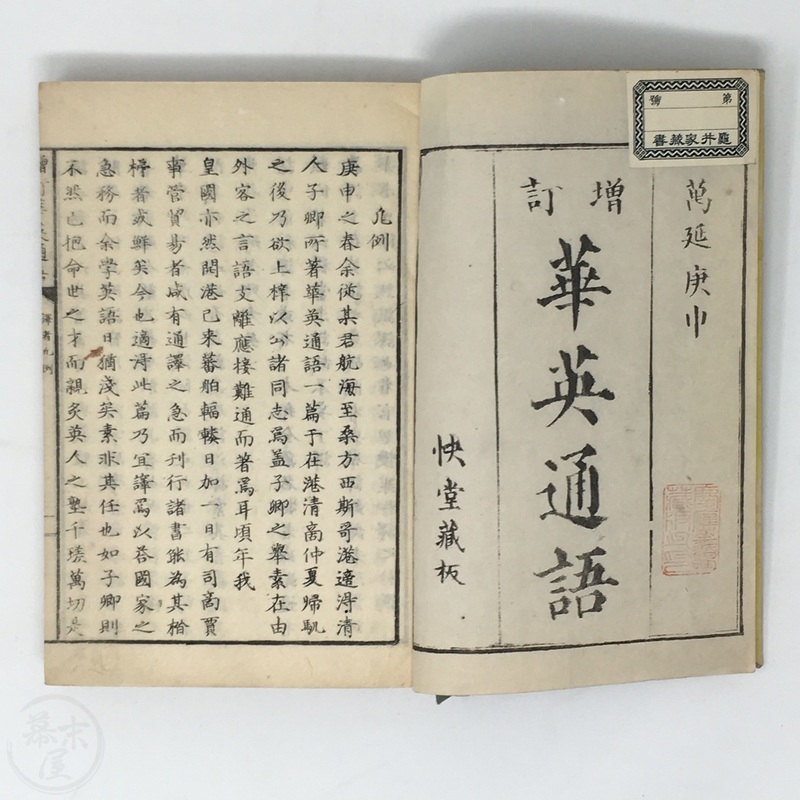 第號
龜井家藏書
萬延庚申
增訂
華英通語
快堂藏板
凡例
庚申之春余從某君航海至桑方西斯哥港適得清
人子卿所著華英通語一篇于在港清商仲夏歸帆
之後乃欲上梓以公諸同志焉蓋子卿之舉素在由
外客之言語支離應接難通而著焉耳頃年我
皇國亦然開港已來蕃舶輻輳日加一日有司商賈
事管貿易者咸有通譯之急而刊行諸書能為其楷
梯者或鮮矣今也適得此篇乃宜譯焉以答國家之
急務而余學英語日猶淺矣素非其任也如子卿則
不然已抱命世之才而親炙英人之塾千磋萬切是
譯者凡例
幕末屋